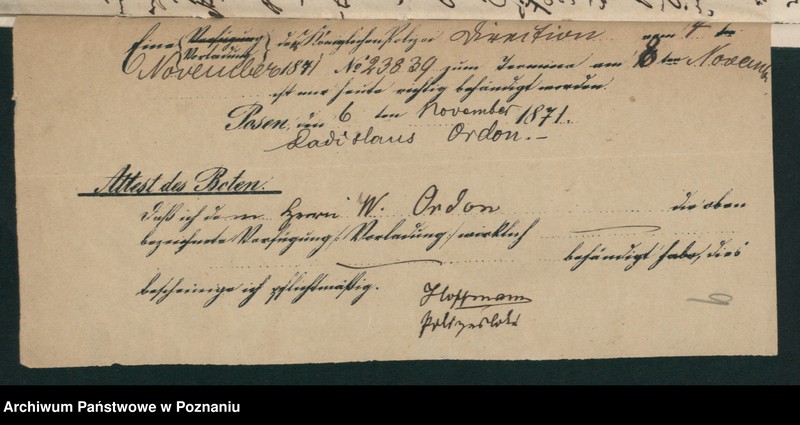 Eine (Verfügung
Vorladung) der Königlichen Polizei Direction vom 4 ten
November 1871 No 23839 zum Termine am 8 ten Novemb
ist mir heute richtig behändigt worden.
Posen, den 6 ten November 1871.
Ladislaus Ordon.-
Attest des Boten.
Daß ich dem Herrn W. Ordon die oben
bezeichnete Verfügung /: Vorladung :/ wirklich
behändigt habe, dies
bescheinige ich pflichtmäßig.
Hoffmann
Polizeibote
Archiwum Państwowe w Poznaniu